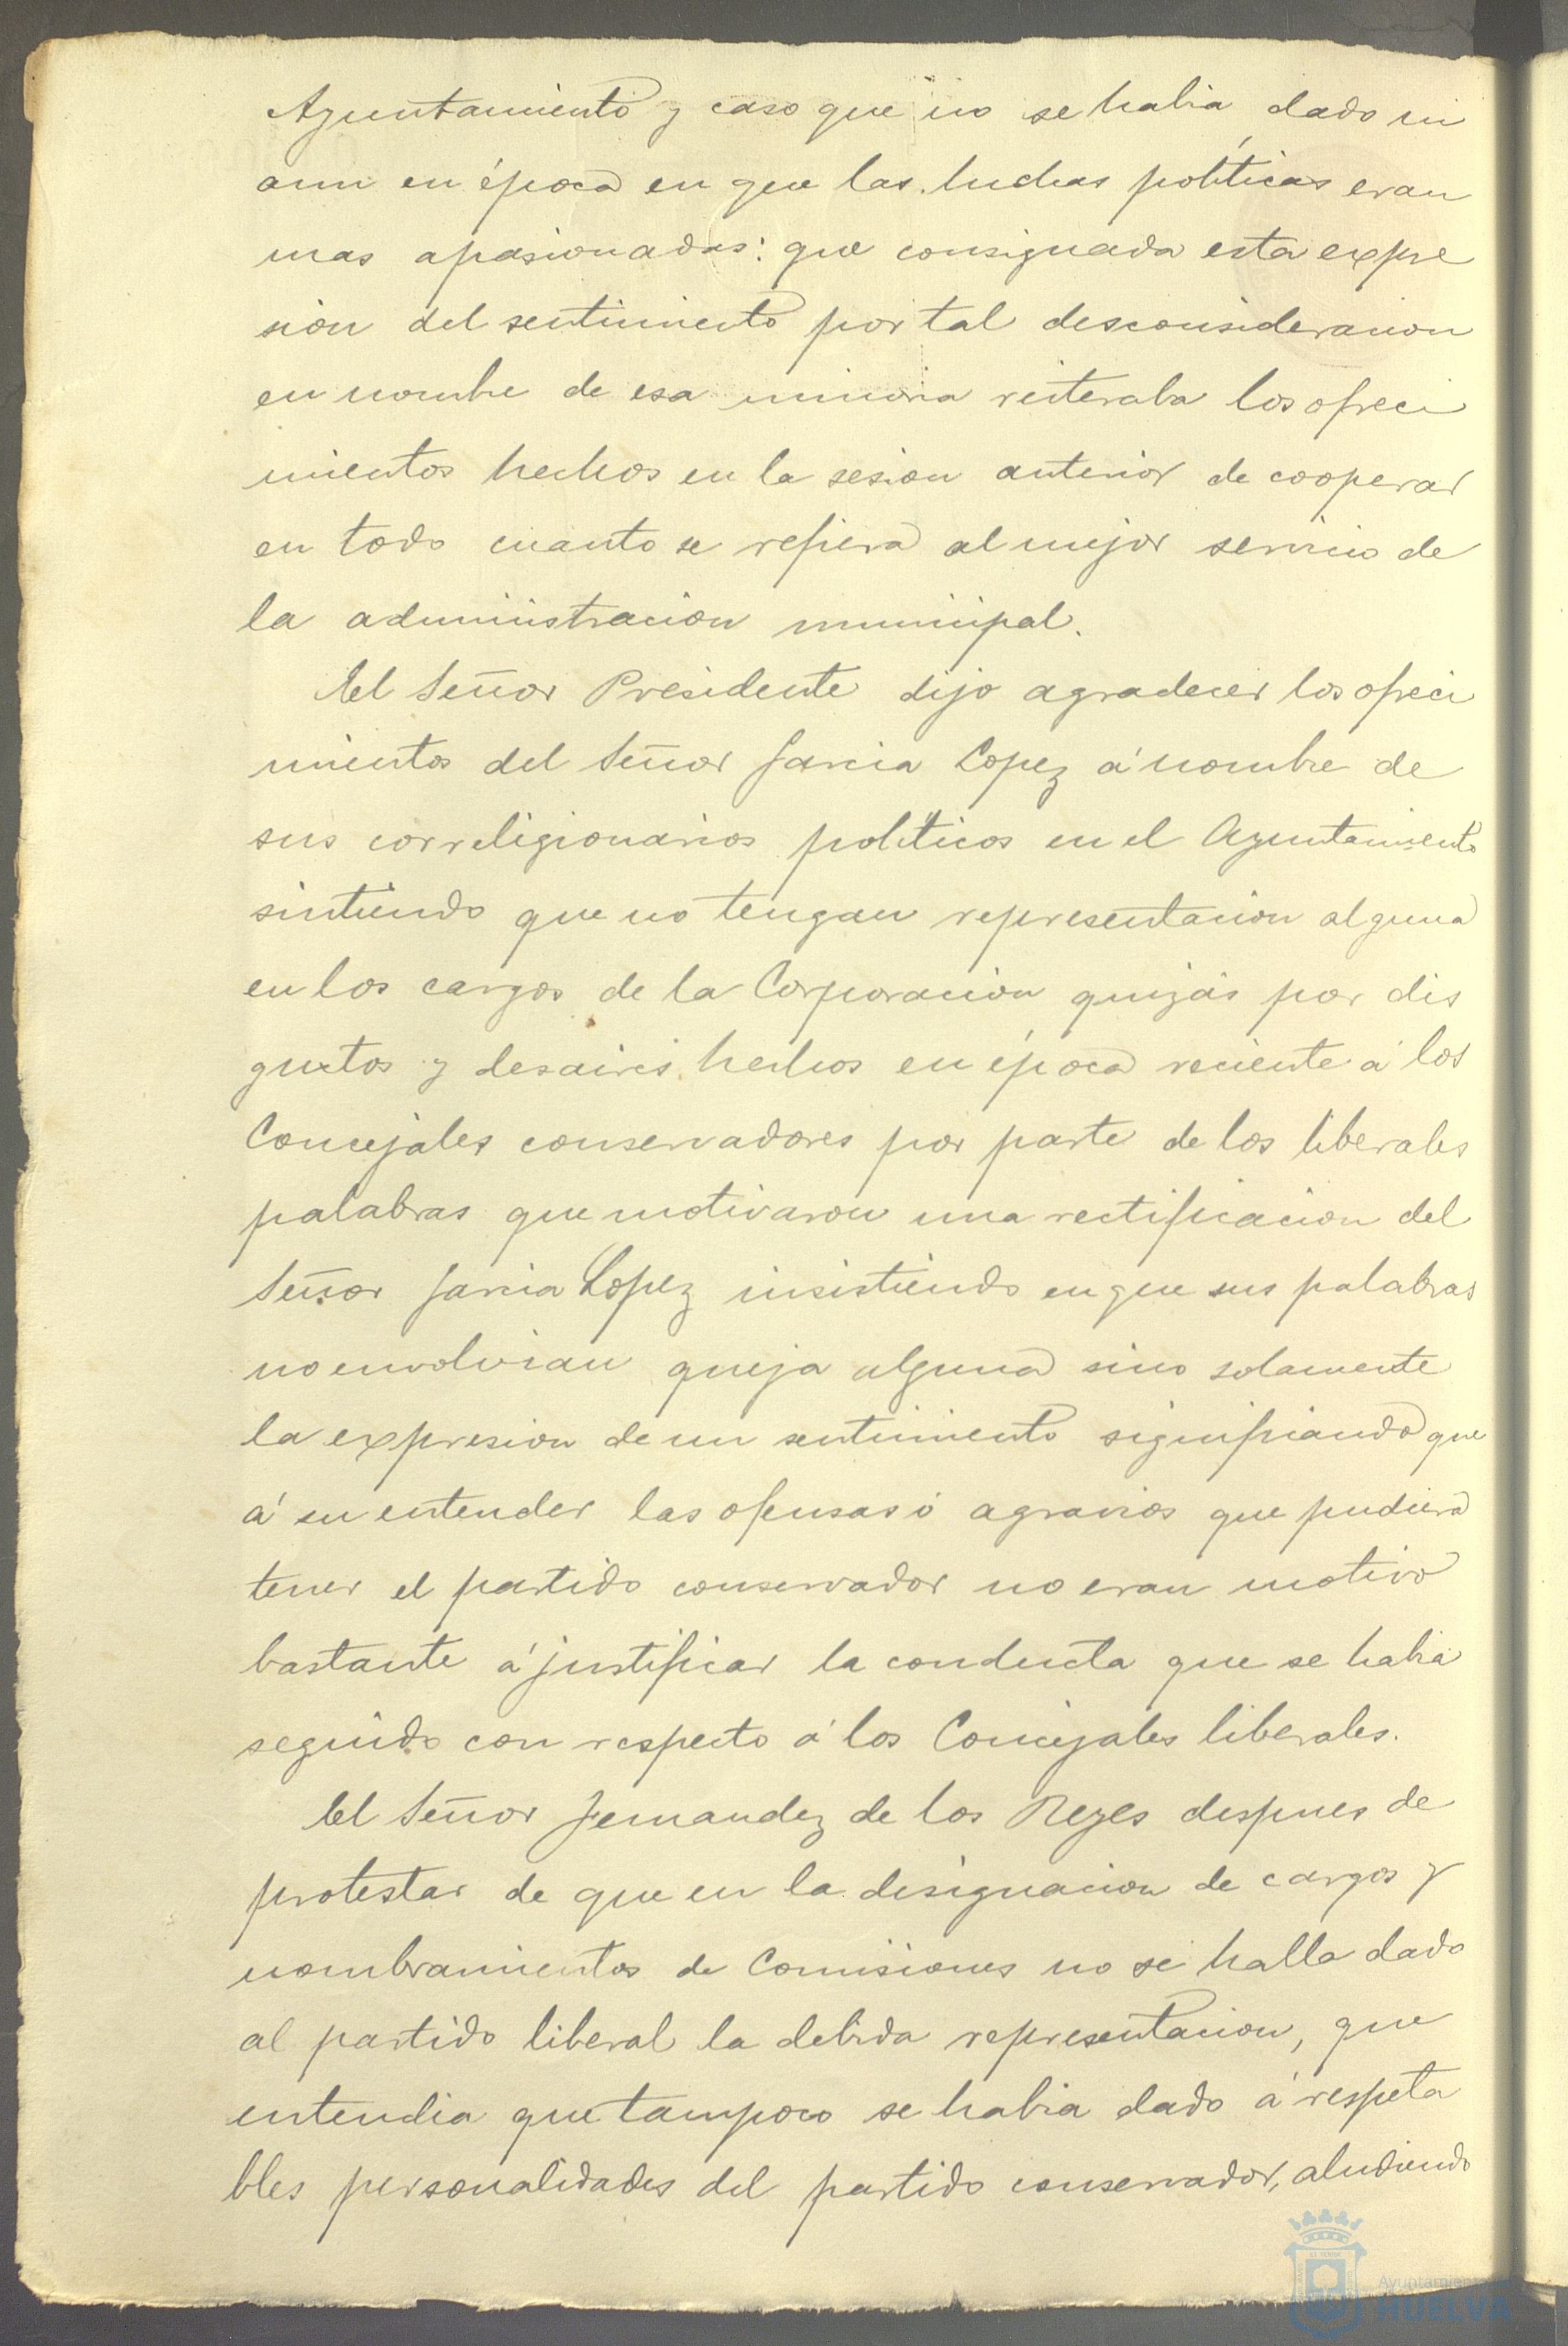 Ayuntamiento y caso que no se habia dado ni
aun en época en que las luchas políticas eran
mas apasionadas: que consignada esta expre
sion del sentimiento por tal desconsideracion
en nombre de esa minoria reiteraba los ofreci
mientos hechos en la sesion anterior de cooperar
en todo cuanto se refiera al mejor servicio de
la administracion municipal.
El Señor Presidente dijo agradecer los ofreci
mientos del Señor Garcia Lopez á nombre de
sus correligionarios políticos en el Ayuntamiento
sintiendo que no tengan representacion alguna
en los cargos de la Corporacion quizás por dis
gustos y desaires hechos en época reciente á los
Concejales conservadores por parte de los liberales
palabras que motivaron una rectificacion del
Señor Garcia Lopez insistiendo en que sus palabras
no envolvian queja alguna sino solamente
la expresion de un sentimiento significando que
á su entender las ofensas ó agravios que pudiera
tener el partido conservador no eran motivo
bastante á justificar la conducta que se habia
seguido con respecto á los Concejales liberales.
El Señor Fernandez de los Reyes despues de
protestar de que en la designacion de cargos y
nombramientos de Comisiones no se halla dado
al partido liberal la debida representacion, que
entendia que tampoco se habia dado á respeta
bles personalidades del partido conservador, aludiendo
Ayuntamiento
HUELVA